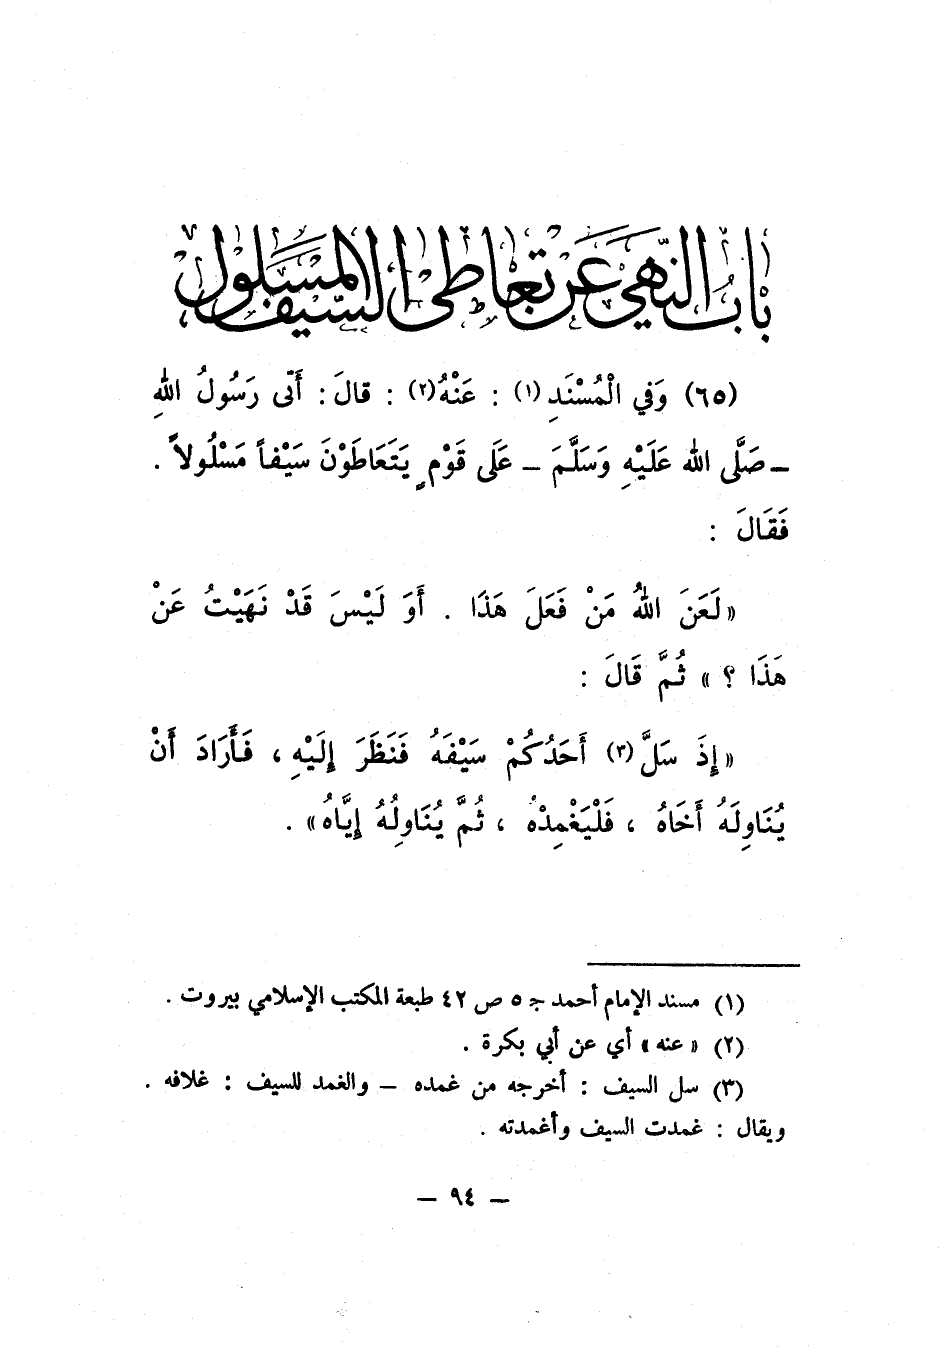 بَابُ النَّهْيِ عَنْ تَعَاطِي السَّيْفِ الْمَسْلُولِ
(٦٥) وَفِي الْمُسْنَدِ(١) : عَنْهُ(٢) : قالَ : أَتَى رَسُولُ اللهِ
ــ صَلَّى الله عَلَيْهِ وَسَلَّمَ ــ عَلَى قَوْمٍ يَتَعَاطَوْنَ سَيْفاً مَسْلُولاً .
فَقَالَ :
«لَعَنَ اللهُ مَنْ فَعَلَ هَذَا . أَوَ لَيْسَ قَدْ نَهَيْتُ عَنْ
هَذَا ؟ » ثُمَّ قَالَ :
«إِذَ سَلَّ(٣) أَحَدُكُمْ سَيْفَهُ فَنَظَرَ إِلَيْهِ ، فَأَرَادَ أَنْ
يُنَاوِلَهُ أَخَاهُ ، فَلْيَغْمِدْهُ ، ثُمَّ يُنَاوِلُهُ إِيَّاهُ» .
(١) مسند الإمام أحمد جـ ٥ ص ٤٢ طبعة المكتب الإسلامي بيروت .
(٢) « عنه » أي عن أبي بكرة .
(٣) سل السيف : أخرجه من غمده ــ والغمد للسيف : غلافه .
ويقال : غمدت السيف وأغمدته .
ــ ٩٤ ــ